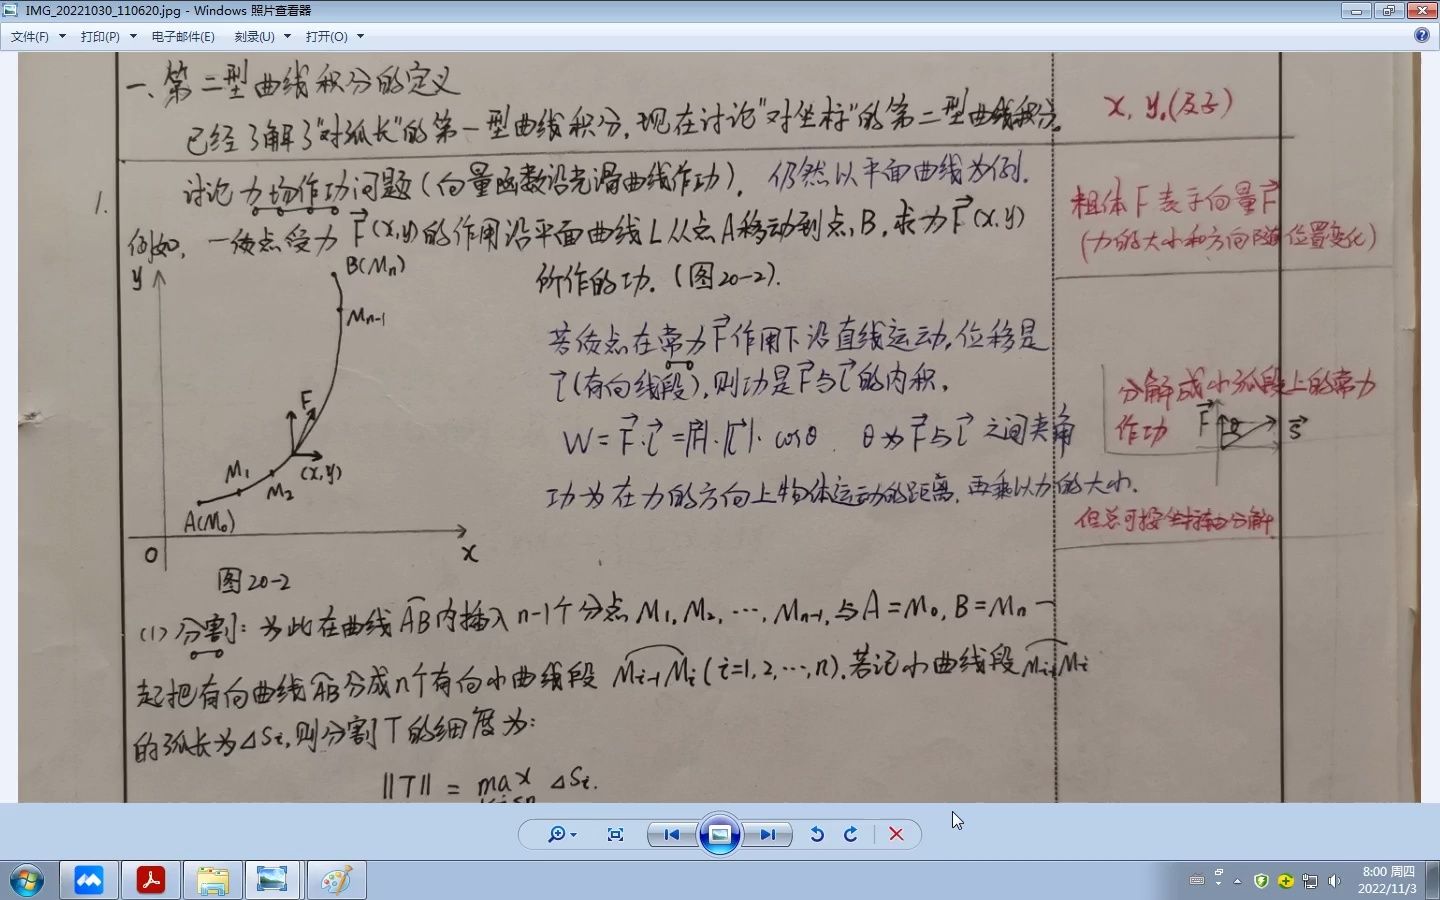 IMG_20221030_110620.jpg - Windows 照片查看器
文件(F) 打印(P) 电子邮件(E) 刻录(U) 打开(O)
一、第二型曲线积分的定义
已经了解了"对弧长"的第一型曲线积分,现在讨论"对坐标"的第二型曲线积分。
x, y,(反了)
1. 讨论力场作功问题(向量函数沿光滑曲线作功), 仍然以平面曲线为例.
例如, 一质点受力 F⃗(x,y)的作用沿平面曲线L从点A移动到点B, 求力F⃗(x,y)
所作的功. (图20-2).
粗体F表示向量F⃗
(力的大小和方向随位置变化)
y
B(Mn)
Mn-1
F
(x,y)
M1
M2
A(M0)
O
x
图20-2
若质点在常力F⃗作用下沿直线运动,位移是
l⃗(有向线段), 则功是F⃗与l⃗的内积.
W = F⃗·l⃗ = |F⃗|·|l⃗|·cosθ. θ为F⃗与l⃗之间夹角
功为在力的方向上物体运动的距离, 再乘以力的大小.
分解成小弧段上的常力
作功
F⃗ θ s⃗
但总可按坐标轴分解
(1) 分割: 为此在曲线AB内插入n-1个分点M1, M2, ⋯, Mn-1, 与A=M0, B=Mn一
起把有向曲线AB分成n个有向小曲线段 Mi-1Mi (i=1,2,⋯,n). 若记小曲线段Mi-1Mi
的弧长为△Si, 则分割T的细度为:
||T|| = max △Si.
8:00 周四
2022/11/3